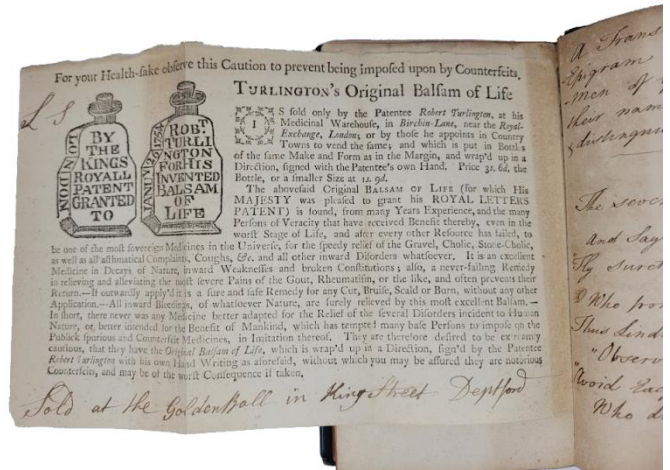 For your Health-sake observe this Caution to prevent being imposed upon by Counterfeits.
L S
BY
THE
KINGS
ROYALL
PATENT
GRANTED
TO
LONDON
ROBT
TURLI
NGTON
FOR HIS
INVENTED
BALSAM
OF
LIFE
TURLINGTON's Original Balsam of Life
IS sold only by the Patentee Robert Turlington, at his
Medicinal Warehouse, in Birchin-Lane, near the Royal-
Exchange, London; or by those he appoints in Country
Towns to vend the same; and which is put in Bottles
of the same Make and Form as in the Margin, and wrap'd up in a
Direction, signed with the Patentee's own Hand. Price 3s. 6d. the
Bottle, or a smaller Size at 1s. 9d.
The abovesaid Original BALSAM OF LIFE (for which His
MAJESTY was pleased to grant his ROYAL LETTERS
PATENT) is found, from many Years Experience, and the many
Persons of Veracity that have received Benefit thereby, even in the
worst Stage of Life, and after every other Resource has failed, to
be one of the most sovereign Medicines in the Universe, for the speedy relief of the Gravel, Cholic, Stone-Cholic,
as well as all asthmatical Complaints, Coughs, &c. and all other inward Disorders whatsoever. It is an excellent
Medicine in Decays of Nature, inward Weaknesses and broken Constitutions; also, a never-failing Remedy
in relieving and alleviating the most severe Pains of the Gout, Rheumatism, or the like, and often prevents their
Return.—If outwardly apply'd it is a sure and safe Remedy for any Cut, Bruise, Scald or Burn, without any other
Application.—All inward Bleedings, of whatsoever Nature, are surely relieved by this most excellent Balsam.—
In short, there never was any Medicine better adapted for the Relief of the several Disorders incident to Human
Nature, or better intended for the Benefit of Mankind, which has tempted many base Persons to impose on the
Publick spurious and Counterfeit Medicines, in Imitation thereof. They are therefore desired to be extremely
cautious, that they have the Original Balsam of Life, which is wrap'd up in a Direction, sign'd by the Patentee
Robert Turlington with his own Hand Writing as aforesaid, without which you may be assured they are notorious
Counterfeits, and may be of the worst Consequence if taken.
Sold at the Golden Ball in King Street Deptford
A Trans
Epigram
men of
their nam
distinguis
The seve
And Say
Who pro
Thus Lind
"Observ
Avoid Ea
Who d